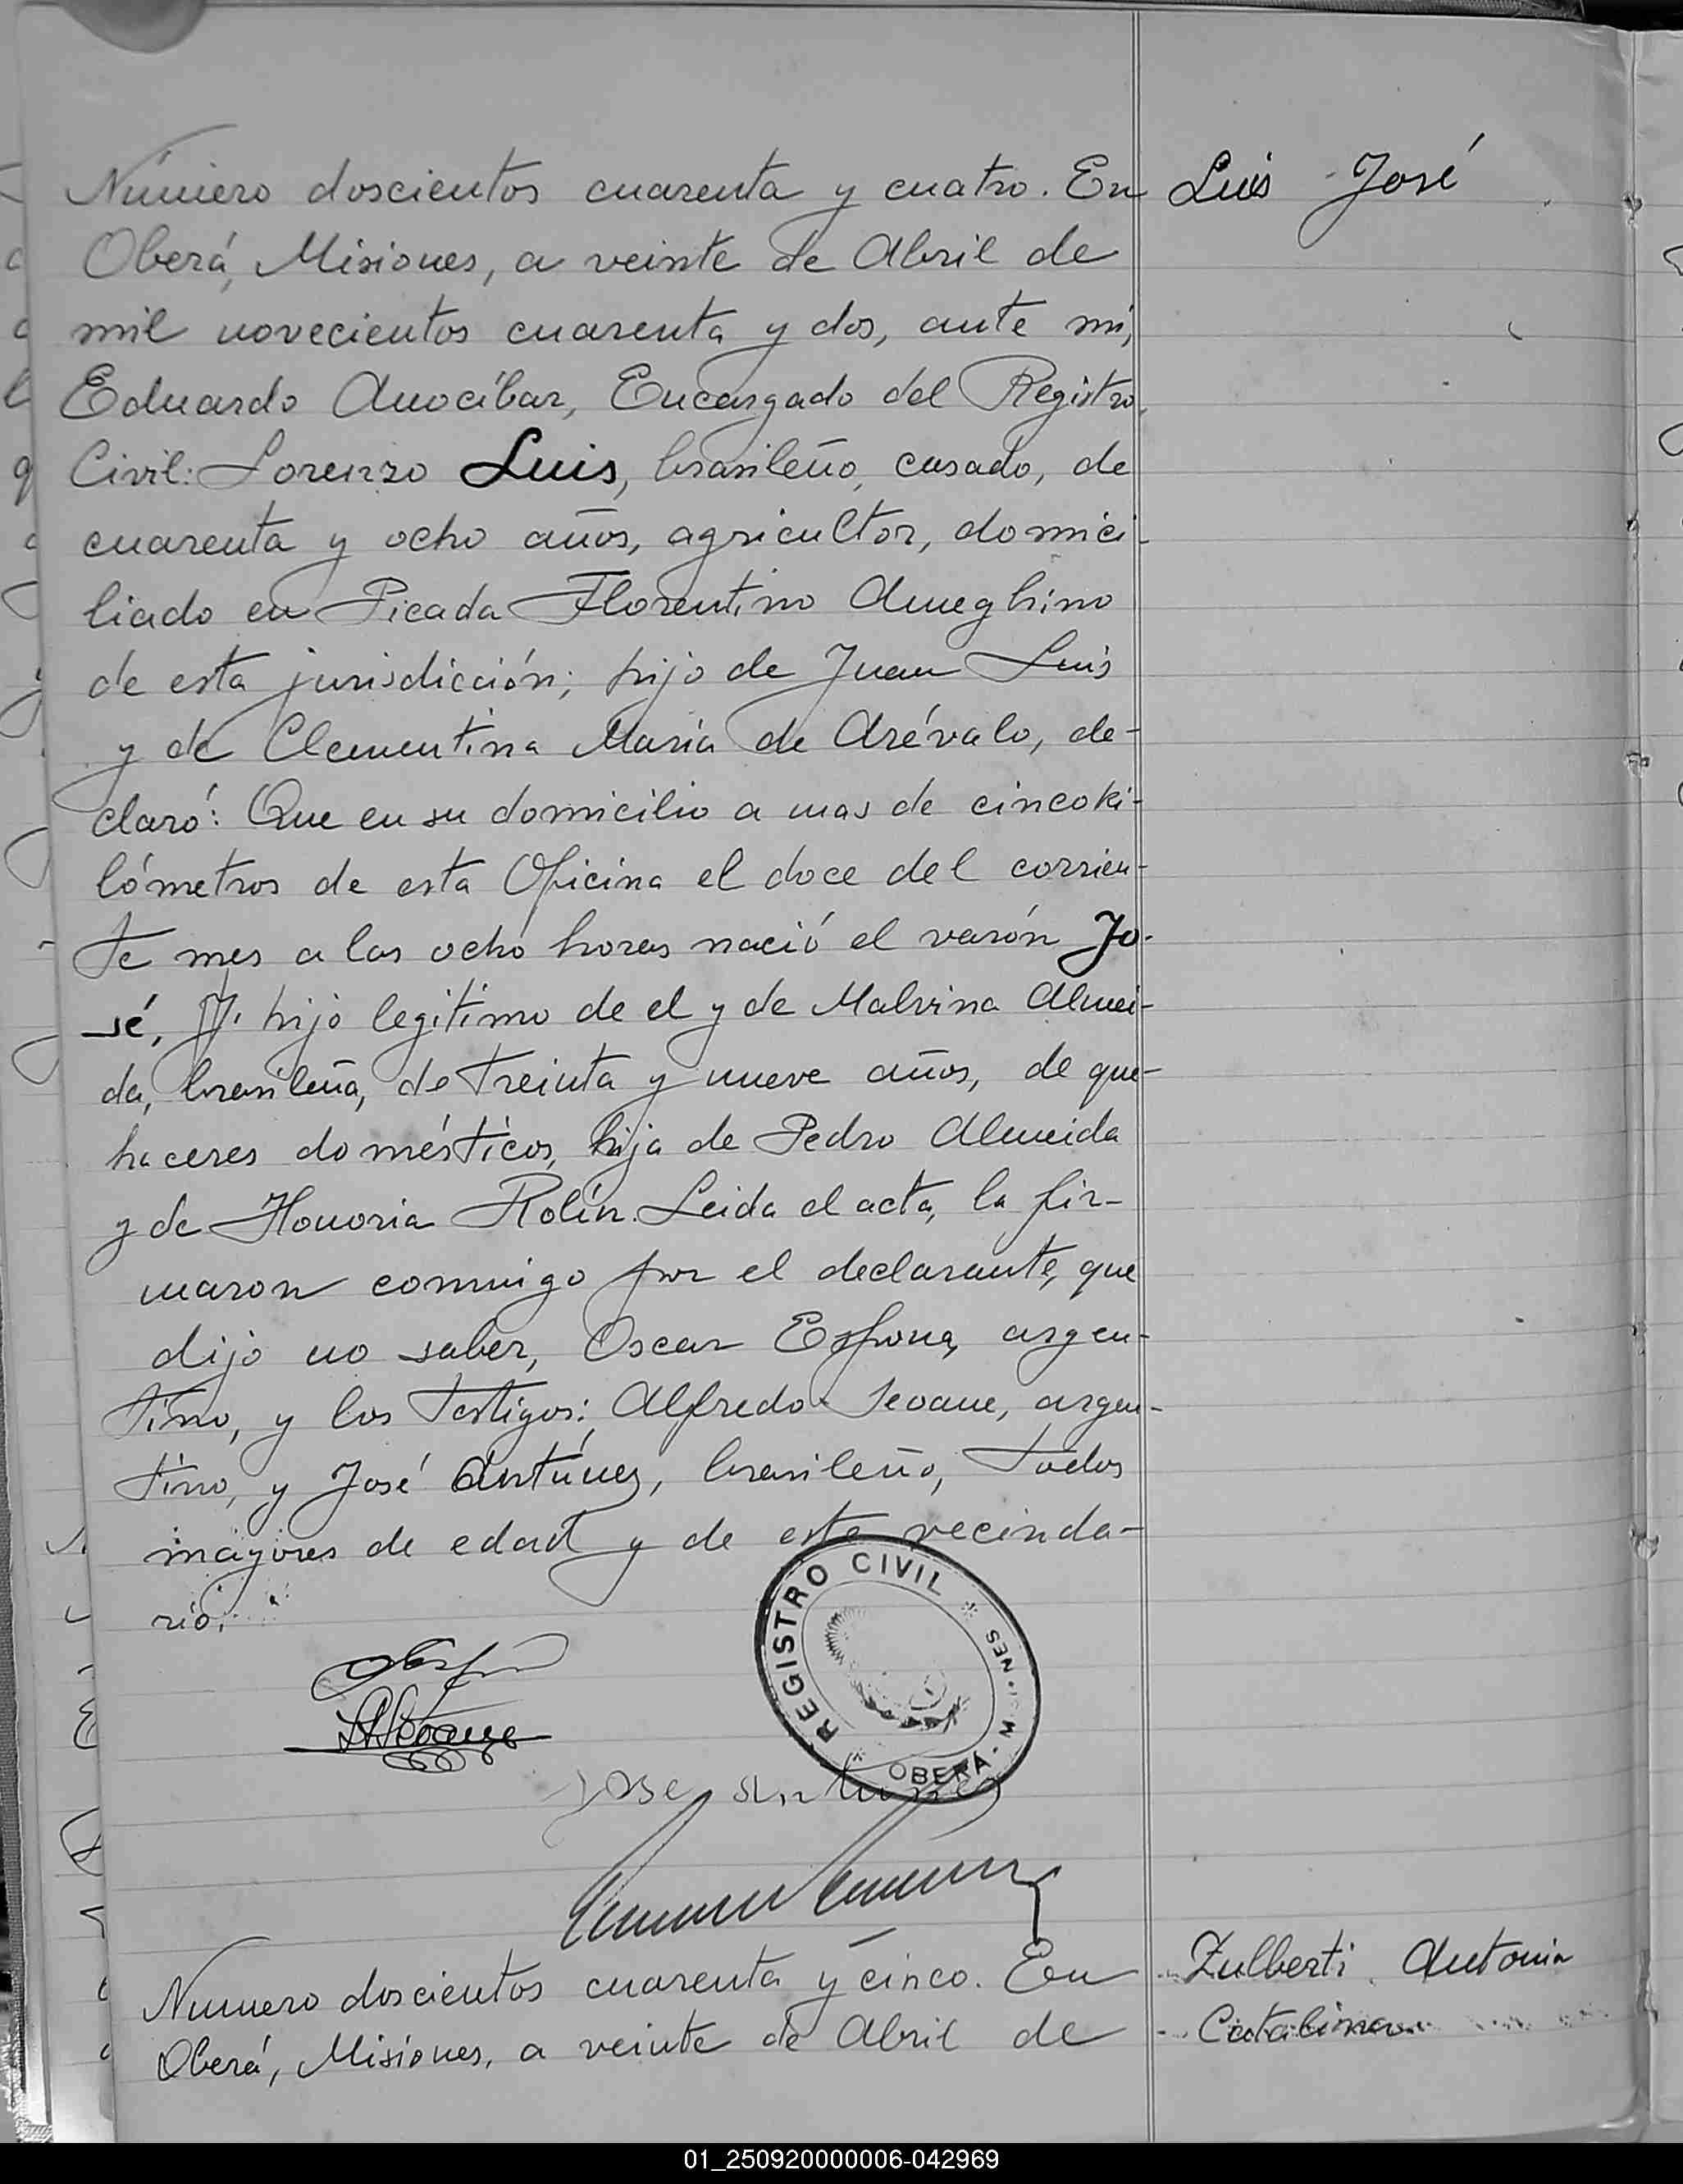 Número doscientos cuarenta y cuatro. En
Luis José
Oberá, Misiones, a veinte de Abril de
mil novecientos cuarenta y dos, ante mí,
Eduardo Anocíbar, Encargado del Registro
Civil: Lorenzo Luis, brasileño, casado, de
cuarenta y ocho años, agricultor, domici-
liado en Picada Florentino Ameghino
de esta jurisdicción; hijo de Juan Luis
y de Clementina María de Arévalo, de-
claró: Que en su domicilio a mas de cinco ki-
lómetros de esta Oficina el doce del corrien-
te mes a las ocho horas nació el varón Jo-
sé, hijo legítimo de el y de Malvina Almei-
da, brasileña, de treinta y nueve años, de que-
haceres domésticos, hija de Pedro Almeida
y de Honoria Rolín. Leida el acta, la fir-
maron conmigo por el declarante, que
dijo no saber, Oscar Espona, argen-
tino, y los testigos: Alfredo Seoane, argen-
tino, y José Antúnez, brasileño, todos
mayores de edad y de este vecinda-
rio.
REGISTRO CIVIL
OBERÁ - MISIONES
ASeoane
Jose Antunez
Numero doscientos cuarenta y cinco. En
Zulberti Antonia
Oberá, Misiones, a veinte de Abril de
Catalina
01_250920000006-042969